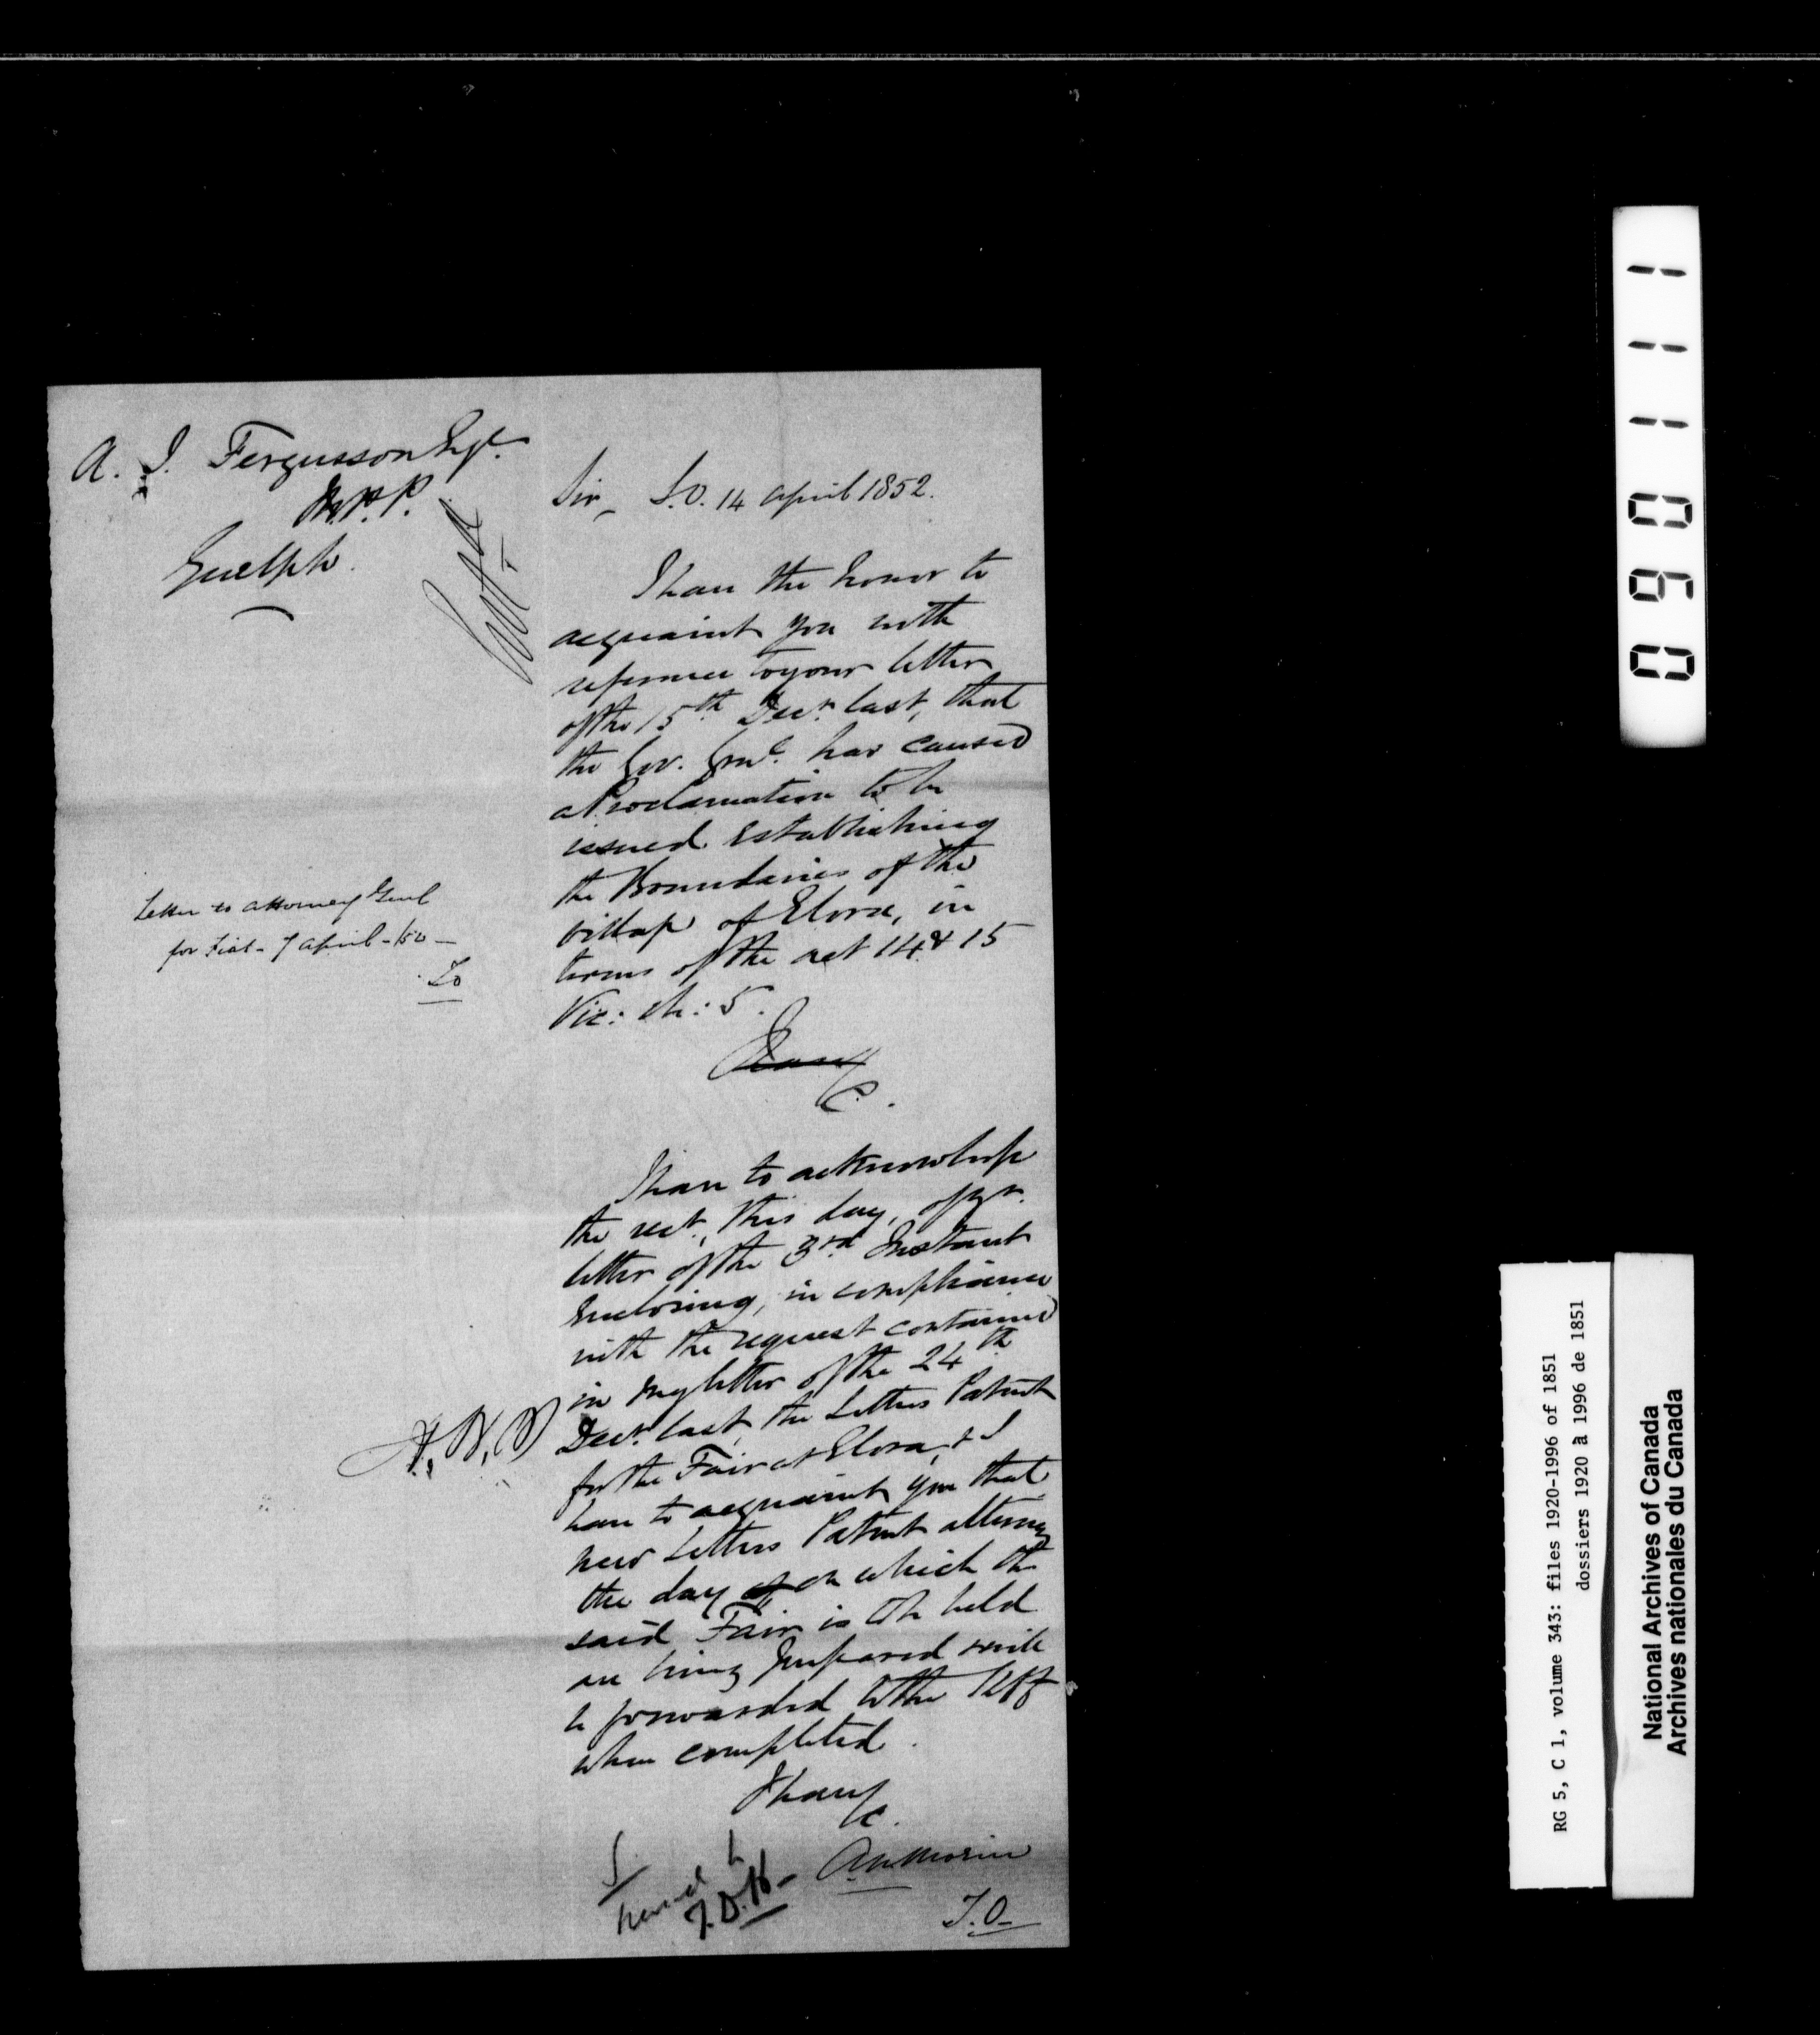 A. J. Fergusson Esqr.
M.P.P.
Guelph.
Sir, S.O. 14 April 1852.
I have the honor to
acquaint you with
reference to your letter
of the 15th Decr. last, that
the Gov. Genl. has caused
a Proclamation to be
issued establishing
the Boundaries of the
village of Elora, in
terms of the act 14 & 15
Vic: ch: 5.
I have &
c.
Letter to Attorney Genl
for Fiat - 7 April -
I have to acknowledge
the rect., this day, of yr.
letter of the 3rd Instant
Enclosing, in compliance
with the request contained
in my letter of the 24th
Decr. last, the Letters Patent
for the Fair at Elora, & I
have to acquaint you that
new Letters Patent altering
the day of on which the
said Fair is to be held
are being prepared & will
be forwarded to the
when completed.
I have &
c.
A.N. Morin
J.O.
RG 5, C 1, volume 343: files 1920-1996 of 1851
dossiers 1920 à 1996 de 1851
National Archives of Canada
Archives nationales du Canada
090111